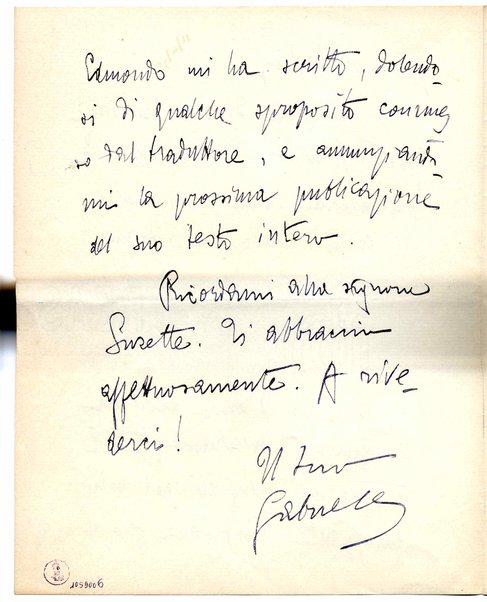 Edmondo mi ha scritto, dolendo-
si di qualche sproposito commes-
so dal traduttore, e annunziando-
mi la prossima pubblicazione
del suo testo intero.
Ricordami alla signora
Susette. Ti abbraccio
affettuosamente. A rive-
derci!
Il tuo
Gabriele
1059006